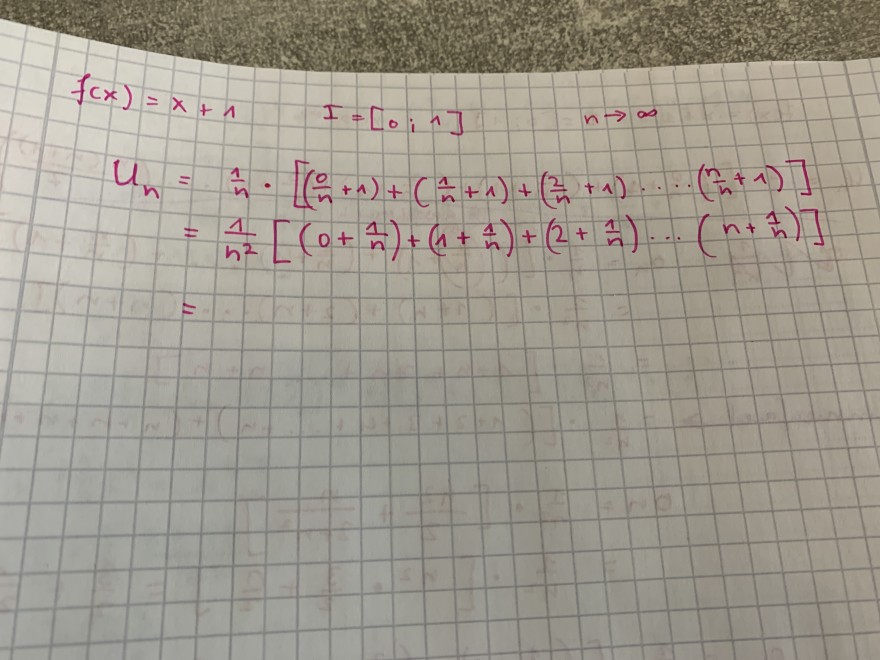 f(x) = x + 1 I = [0; 1] n → ∞
Un = 1/n · [(0/n + 1) + (1/n + 1) + (2/n + 1) ..... (n/n + 1)]
= 1/n² [(0 + 1/n) + (1 + 1/n) + (2 + 1/n) ... (n + 1/n)]
=